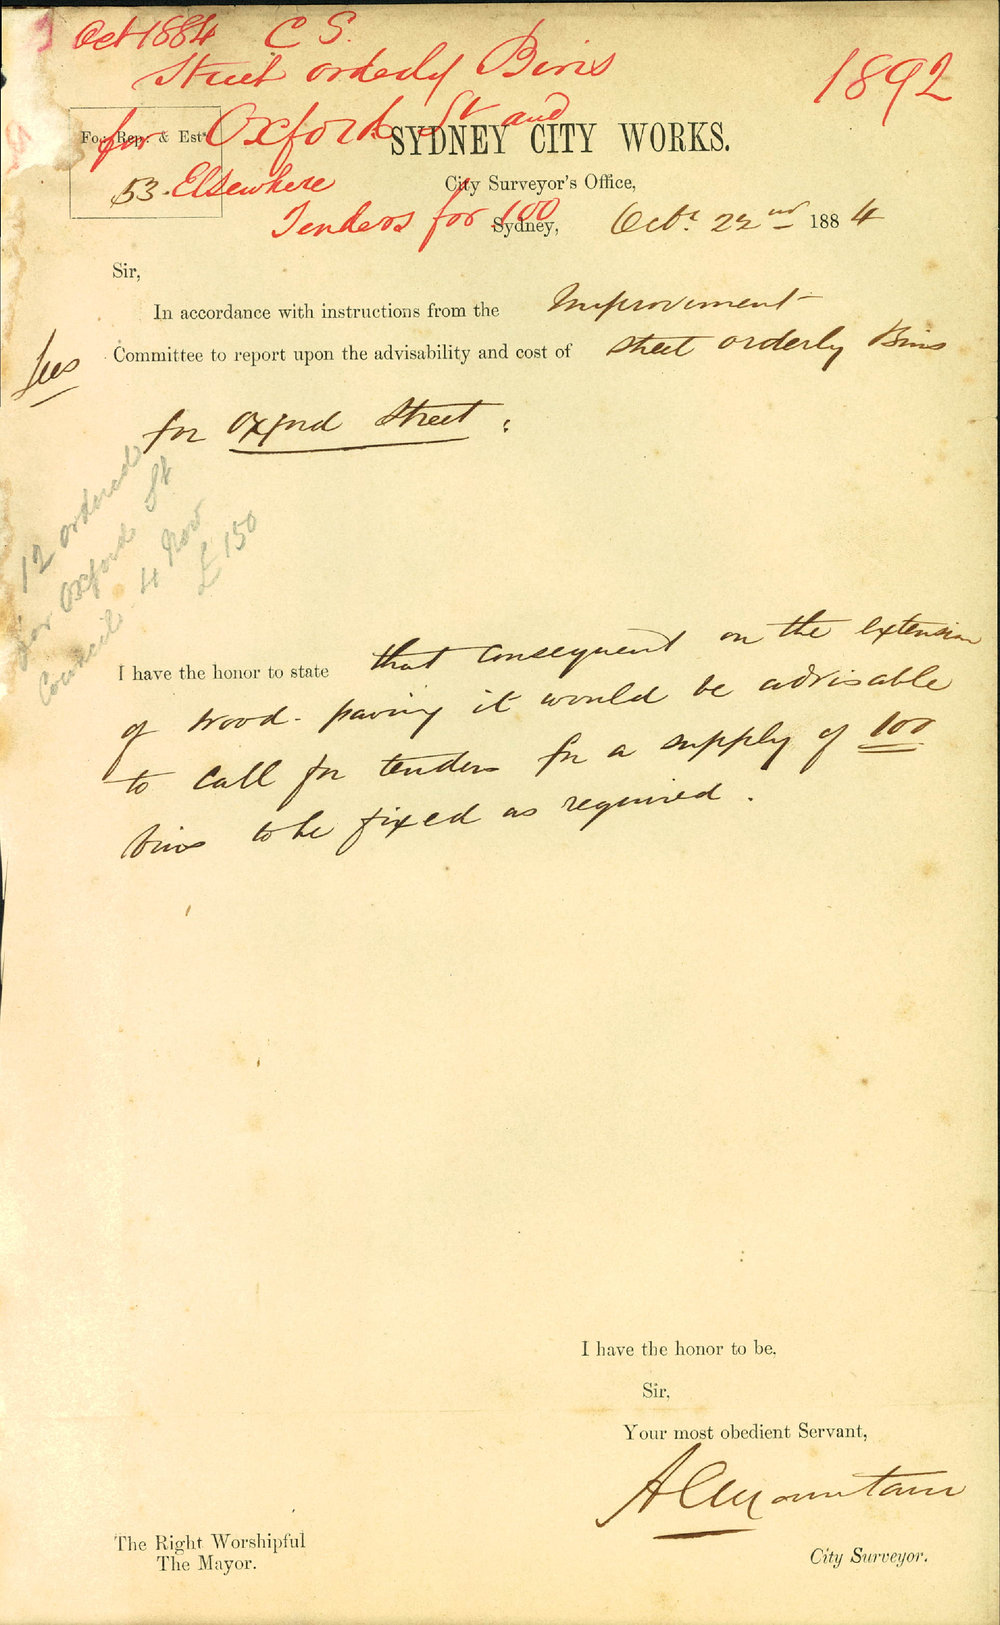 Oct 1884 C S.
1892
Street orderly Bins
for Oxford St and
Elsewhere
Tenders for 100
Fo: Rep: & Est
53.
SYDNEY CITY WORKS.
City Surveyor's Office,
Sydney, Octr. 22nd 1884
Sir,
In accordance with instructions from the Improvement
Committee to report upon the advisability and cost of street orderly Bins
for Oxford Street:
12 ordered
for Oxford St
Council 4 Nov
£150
I have the honor to state that consequent on the extension
of wood-paving it would be advisable
to call for tenders for a supply of 100
bins to be fixed as required.
I have the honor to be,
Sir,
Your most obedient Servant,
A C Mountain
City Surveyor.
The Right Worshipful
The Mayor.